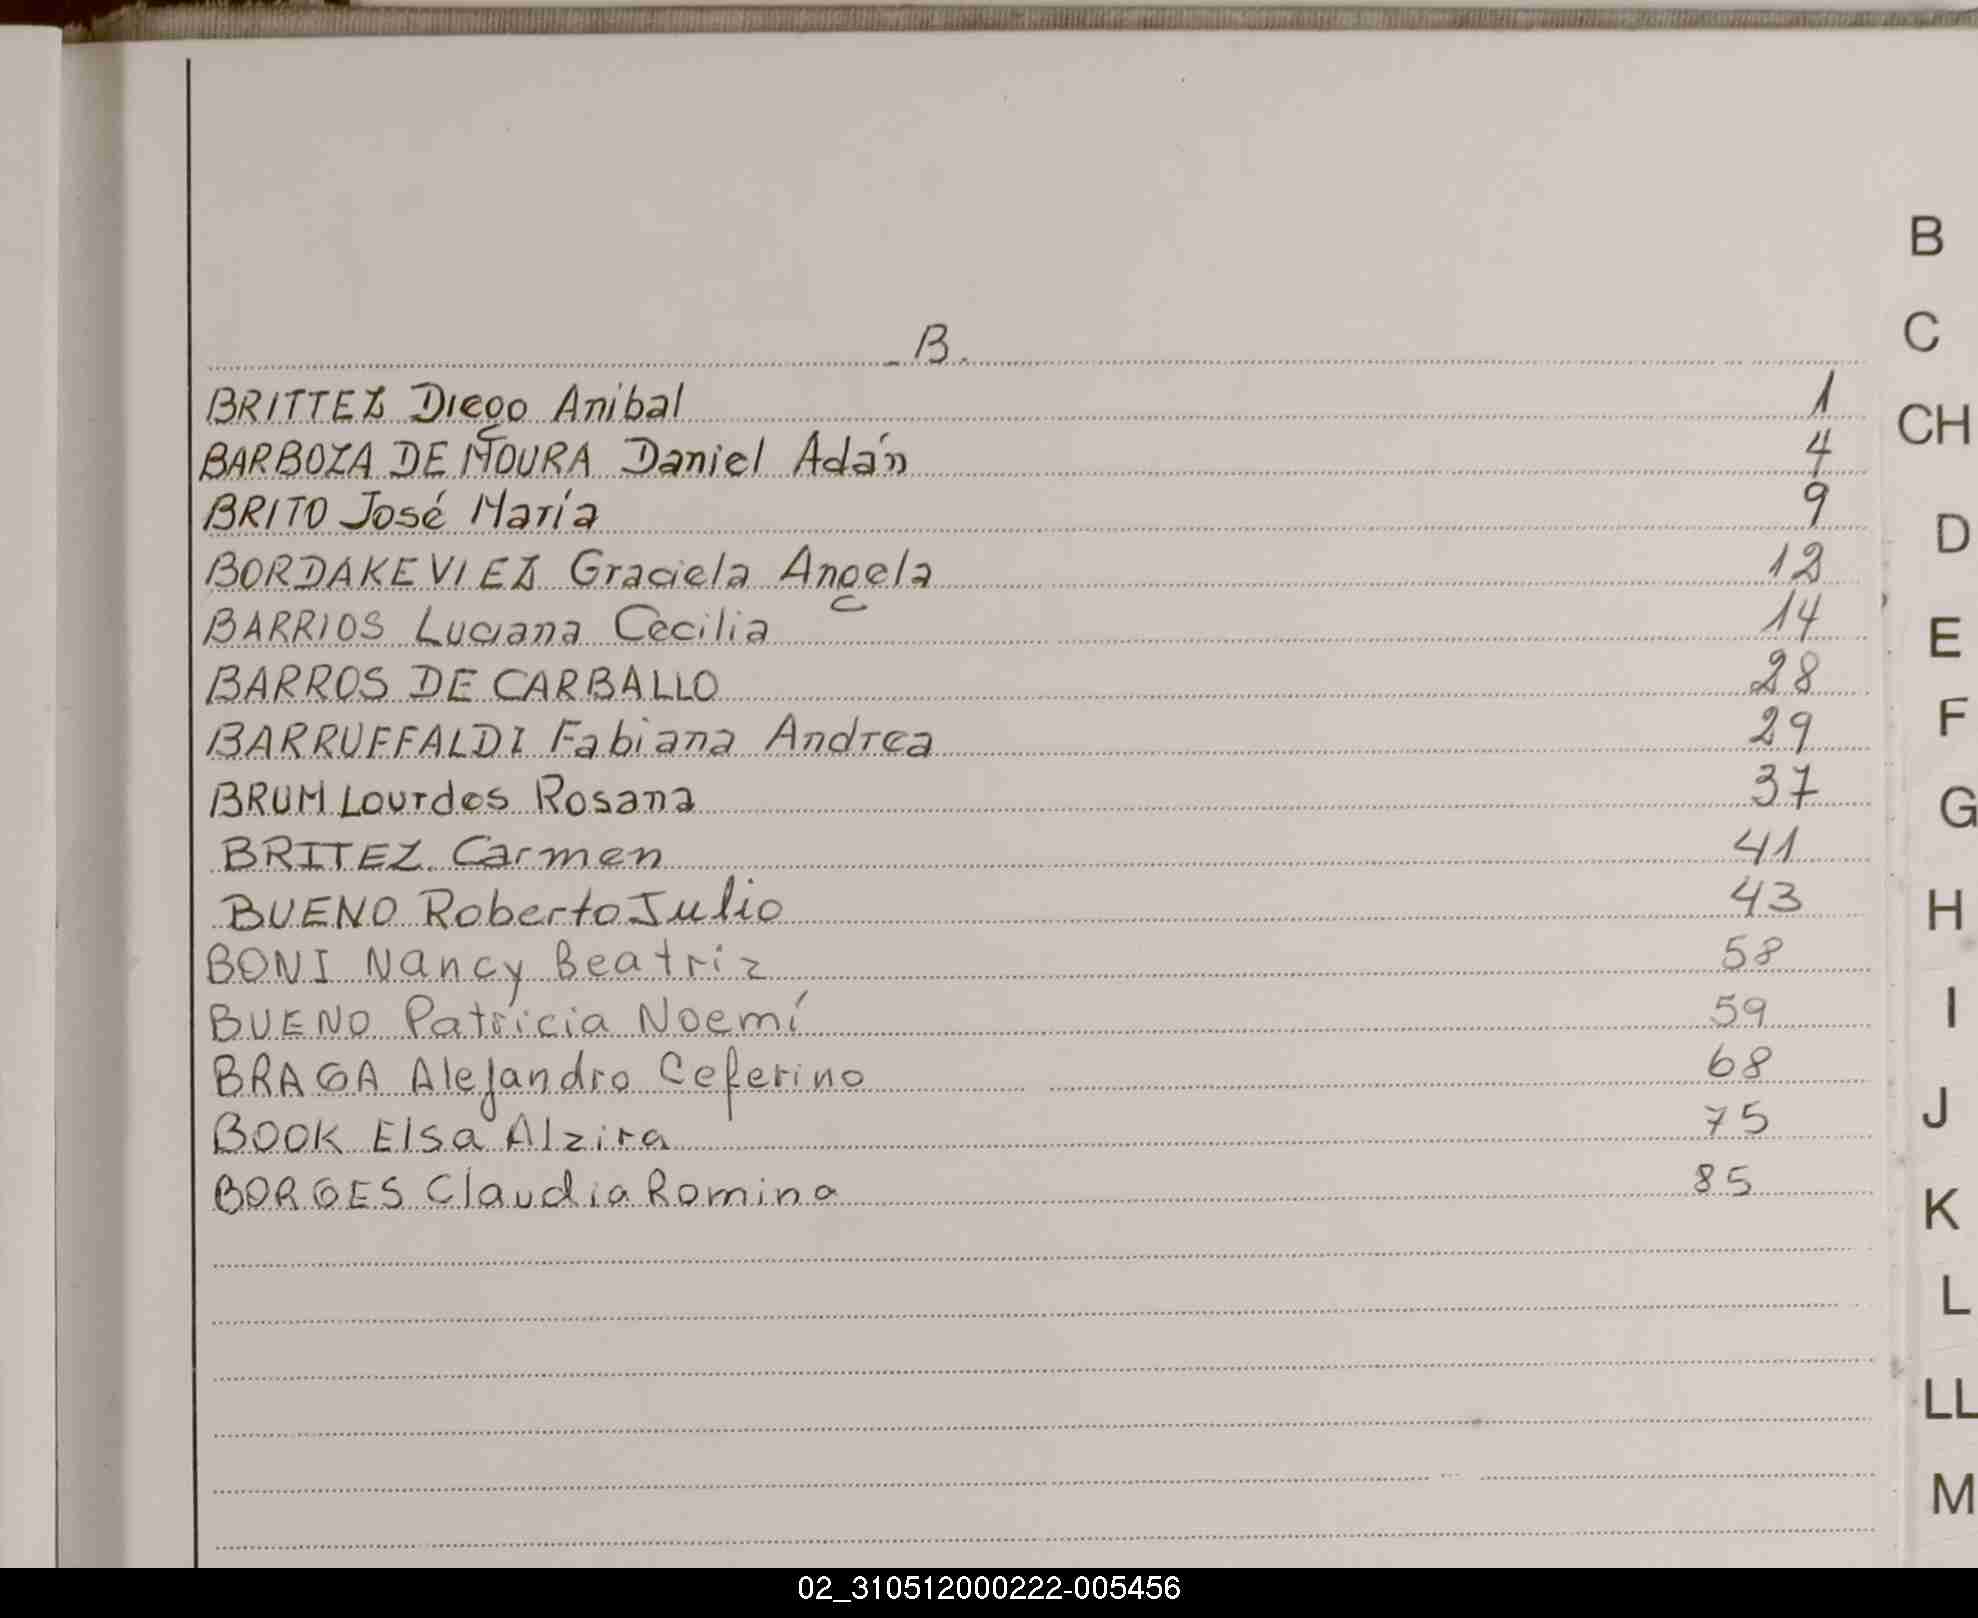 - B.
BRITTEZ Diego Anibal 1
BARBOZA DE MOURA Daniel Adán 4
BRITO José María 9
BORDAKEVIEZ Graciela Angela 12
BARRIOS Luciana Cecilia 14
BARROS DE CARBALLO 28
BARRUFFALDI Fabiana Andrea 29
BRUM Lourdes Rosana 37
BRITEZ Carmen 41
BUENO Roberto Julio 43
BONI Nancy Beatriz 58
BUENO Patricia Noemí 59
BRAGA Alejandro Ceferino 68
BOOK Elsa Alzira 75
BORGES Claudia Romina 85
B
C
CH
D
E
F
G
H
I
J
K
L
LL
M
02_310512000222-005456